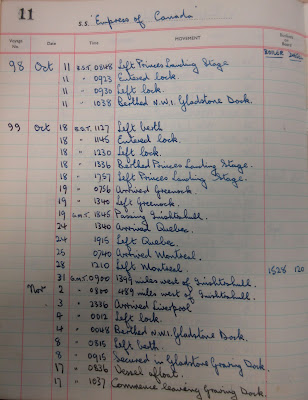 11
S.S. "Empress of Canada"
Voyage No. Date Time MOVEMENT
98 Oct 11 B.S.T. 0848 Left Princes Landing Stage
11 " 0923 Entered lock.
11 " 0930 Left lock.
11 " 1038 Berthed N.W.1. Gladstone Dock.
99 Oct 18 B.S.T. 1127 Left berth
18 " 1145 Entered lock.
18 " 1230 Left lock.
18 " 1336 Berthed Princes Landing Stage.
18 " 1757 Left Princes Landing Stage.
19 " 0756 Arrived Greenock.
19 " 1340 Left Greenock.
19 G.M.T. 1845 Passing Inishtrahull.
24 1340 Arrived Quebec.
24 1915 Left Quebec.
25 0740 Arrived Montreal.
28 1210 Left Montreal 1528 120
31 G.M.T. 0900 1399 miles west of Inishtrahull.
Nov 2 " 0800 489 miles west of Inishtrahull.
3 " 2336 Arrived Liverpool
4 " 0012 Left lock.
4 " 0048 Berthed N.W.1. Gladstone Dock.
8 " 0815 Left berth.
8 " 0915 Secured in Gladstone Graving Dock.
17 " 0836 Vessel afloat.
17 " 1037 Commence leaving Graving Dock.